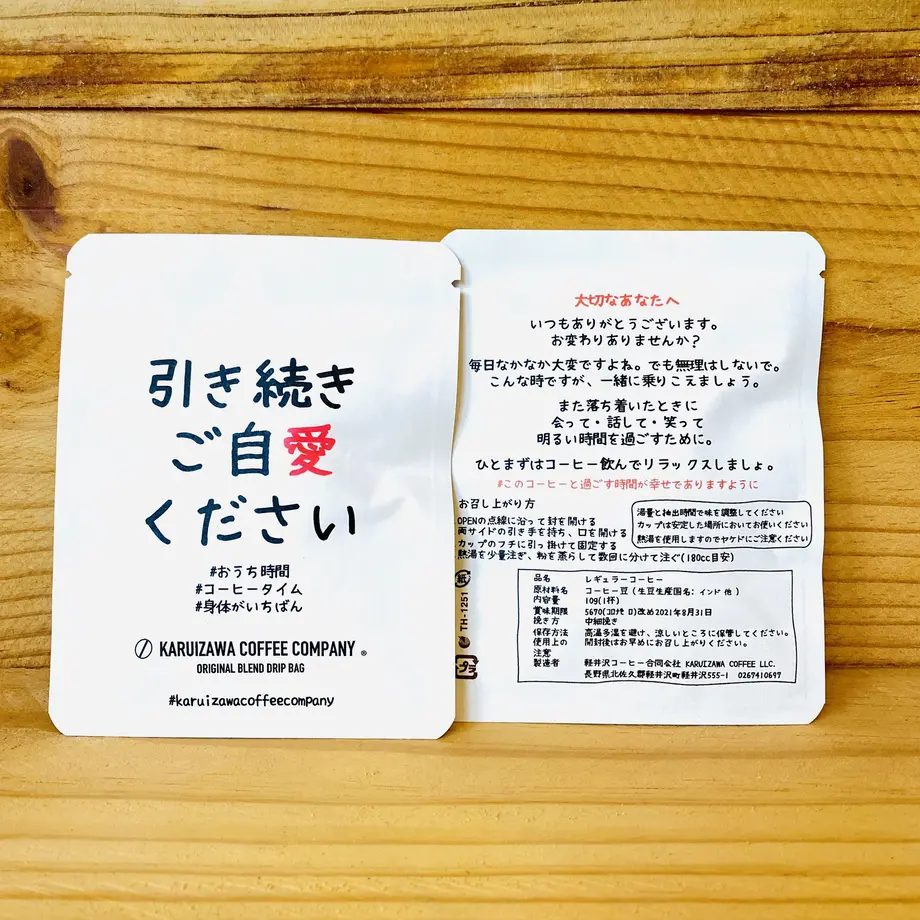 引き続き
ご自愛
ください
#おうち時間
#コーヒータイム
#身体がいちばん
KARUIZAWA COFFEE COMPANY ®
ORIGINAL BLEND DRIP BAG
#karuizawacoffeecompany
大切なあなたへ
いつもありがとうございます。
お変わりありませんか？
毎日なかなか大変ですよね。でも無理はしないで。
こんな時ですが、一緒に乗りこえましょう。
また落ち着いたときに
会って・話して・笑って
明るい時間を過ごすために。
ひとまずはコーヒー飲んでリラックスしましょ。
#このコーヒーと過ごす時間が幸せでありますように
お召し上がり方
OPENの点線に沿って封を開ける
両サイドの引き手を持ち、口を開ける
カップのフチに引っ掛けて固定する
熱湯を少量注ぎ、粉を蒸らして数回に分けて注ぐ(180cc目安)
湯量と抽出時間で味を調整してください
カップは安定した場所においてお使いください
熱湯を使用しますのでヤケドにご注意ください
紙
TH-1251
プラ
品名 レギュラーコーヒー
原材料名 コーヒー豆(生豆生産国名: インド 他)
内容量 10g(1杯)
賞味期限 5670(コロナゼロ)改め2021年8月31日
挽き方 中細挽き
保存方法 高温多湿を避け、涼しいところに保管してください。
使用上の 開封後はお早めにお召し上がりください。
注意
製造者 軽井沢コーヒー合同会社 KARUIZAWA COFFEE LLC.
長野県北佐久郡軽井沢町軽井沢555-1 0267410697